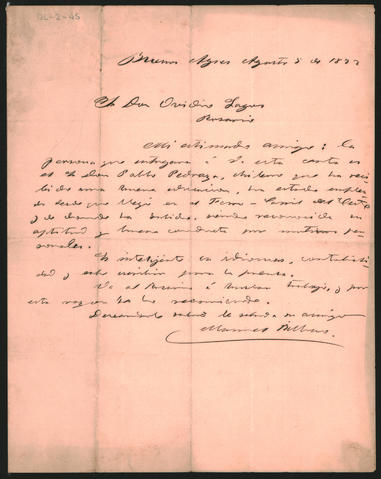 OL-2-45
Buenos Ayres Agosto 5 de 1873
Sr Don Ovidio Lagos
Rosario
Mi estimado amigo: la
persona que entregará á Ud esta carta es
el Sr Don Pablo Pedraza, chileno que ha reci-
bido una buena educacion, ha estado emplea-
do desde que llegó en el Ferro-Carril del
y de donde ha salido, siendo reconocida su
aptitud y buena conducta por
Es inteligente en idiomas, contabili-
dad y escribir para la prensa.
Va al Rosario á buscar trabajo, y por
esta razon se lo recomiendo.
Deseandole salud le saluda su amigo
Manuel Bilbao.